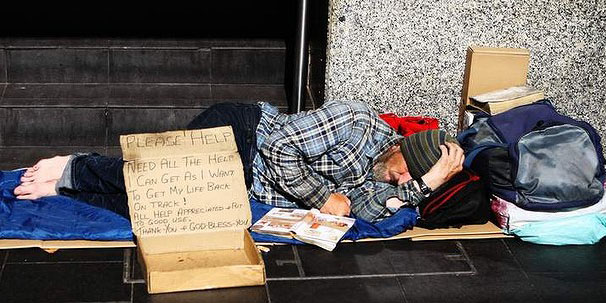 PLEASE HELP
NEED ALL THE HELP
I CAN GET AS I WANT
TO GET MY LIFE BACK
ON TRACK!
ALL HELP APPRECIATED & PUT
TO GOOD USE.
THANK-YOU & GOD-BLESS-YOU